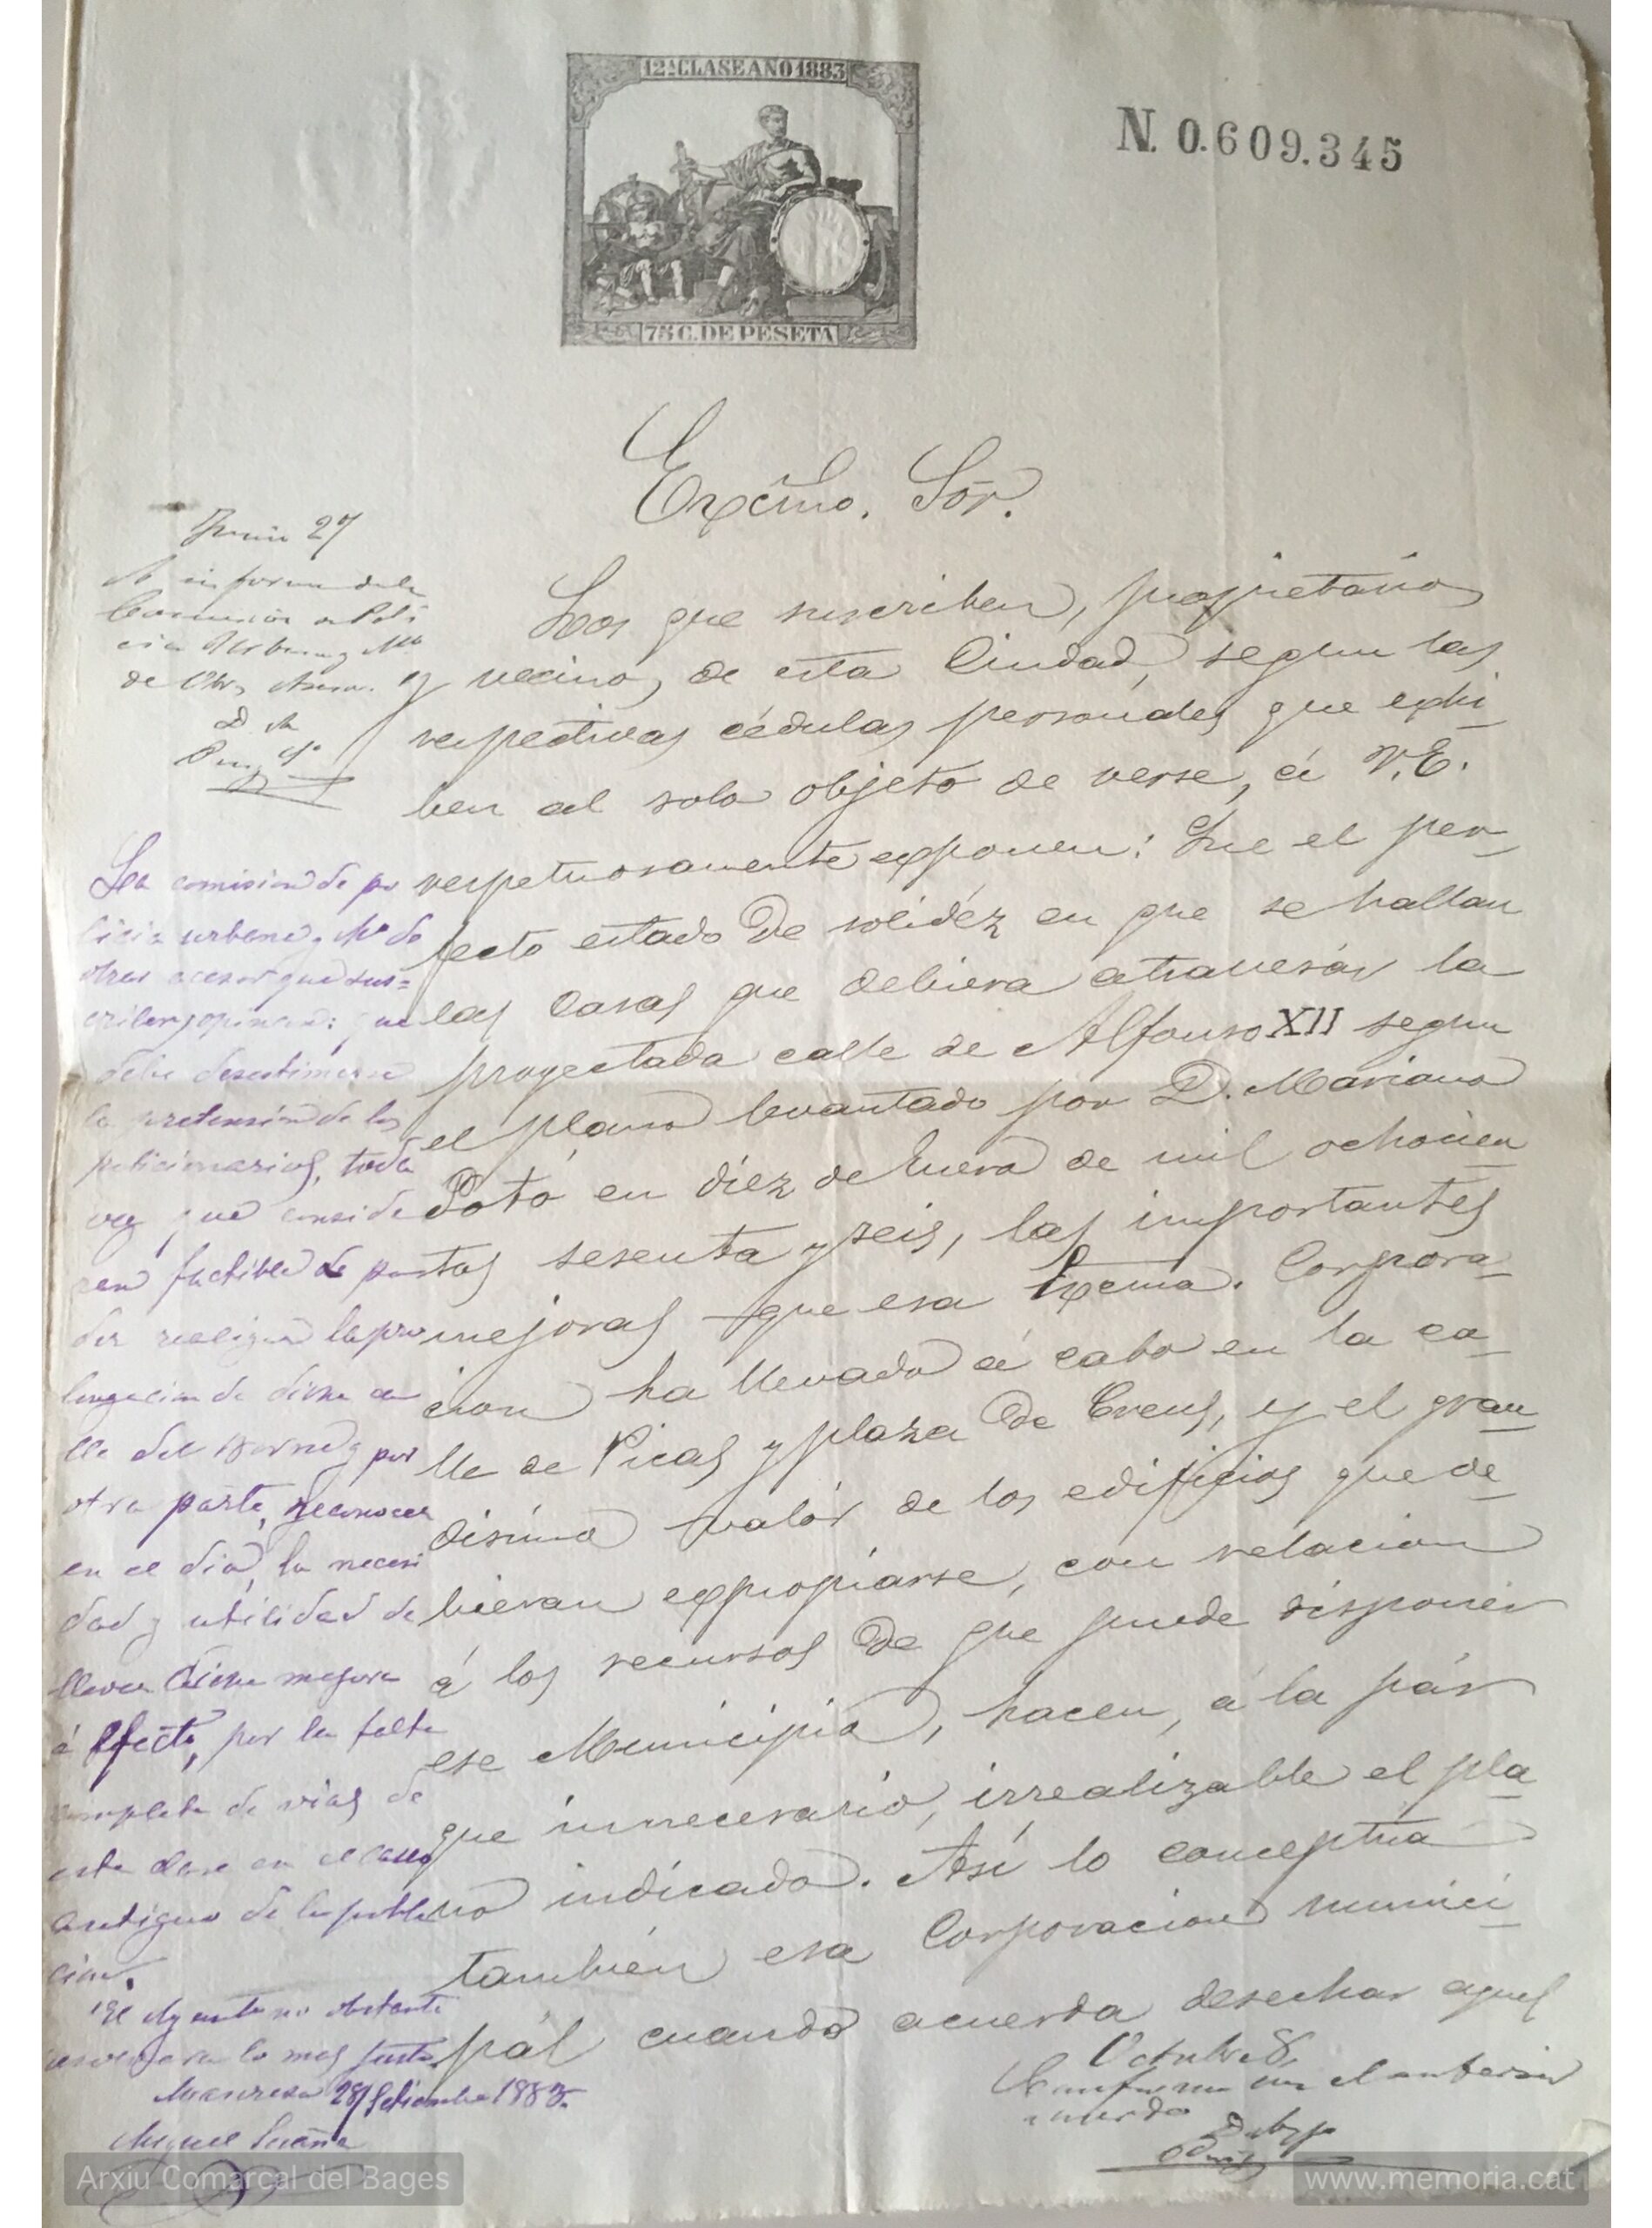 12ª CLASE AÑO 1883
75 C. DE PESETA
N. 0.609.345
Excmo. Sor.
Junio 27
A informe dela
Comision de Poli
cia Urbana y Mo
de Obs
D. A.
Los que suscriben, propietarios
y vecinos de esta Ciudad, segun las
respectivas cédulas personales que exhi
ben al solo objeto de verse, á V.E.
respetuosamente exponen: Que el per-
fecto estado de solidéz en que se hallan
las casas que debiera atravesár la
proyectada calle de Alfonso XII segun
el plano levantado por D. Mariano
Potó en diéz de Enero de mil ochocien
tos sesenta y seis, las importantes
mejoras que esa Excma. Corpora-
cion ha llevado á cabo en la ca-
lle de Picas y plaza de Creus, y el gran
disimo valór de los edificios que de-
bieran expropiárse, con relacion
á los recursos de que puede disponér
ese Municipio, hacen, á la pár
que innecesario, irrealizable el pla
no indicado. Así lo conceptúa
también esa Corporacion munici
pál cuando acuerda desechar aquel
La comision de po
licia urbana y Mo de
obras acesor que sus=
criben, opinan: que
debe desestimarse
la pretensión de los
peticionarios, toda
vez que conside
ran factible de po
der realizar la pro
longacion de dicha ca
lle del Borne y por
otra parte, reconocer
en el dia, la necesi
dad y utilidad de
llevar dicha mejora
á efecto, por la falta
completa de vias de
esta clase en el casco
antiguo de la pobla
cion.
El Ayunto no obstante
resolvera lo mas justo
Manresa 28 Setiembre 1883.
Miguel
Octubre 8
Conforme con el anterior
acuerdo
Arxiu Comarcal del Bages
www.memoria.cat